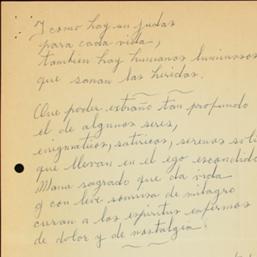 Y como hay un judas
para cada vida,
tambien hay humanos luminosos
que sanan las heridas.
Que poder extraño tan profundo
el de algunos seres,
enigmaticos, satiricos, serenos
que llevan en el ego escondido
Mana sagrado que da vida
y con leve sonrisa de milagro
curan a los espiritus enfermos
de dolor y de nostalgia.